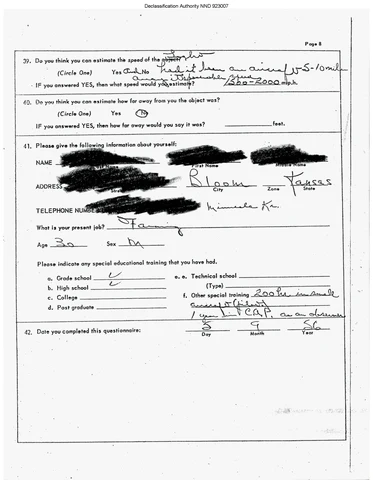 Declassification Authority NND 923007
Page 8
39. Do you think you can estimate the speed of the object?
(Circle One) Yes And No had it been an aircraft 5-10 mile
away its
IF you answered YES, then what speed would you estimate? 1500-2000 mph
40. Do you think you can estimate how far away from you the object was?
(Circle One) Yes No
IF you answered YES, then how far away would you say it was? feet.
41. Please give the following information about yourself:
NAME
First Name Middle Name
ADDRESS Bloom Kansas
Street City Zone State
TELEPHONE NUMBER Minneola Kn.
What is your present job? Farming
Age 30 Sex M
Please indicate any special educational training that you have had.
a. Grade school ✓ e. Technical school
b. High school ✓ (Type)
c. College f. Other special training 200 hr. in small
d. Post graduate aircraft (Pilot)
1 year in CAP. as an observer
42. Date you completed this questionnaire: 5 9 56
Day Month Year